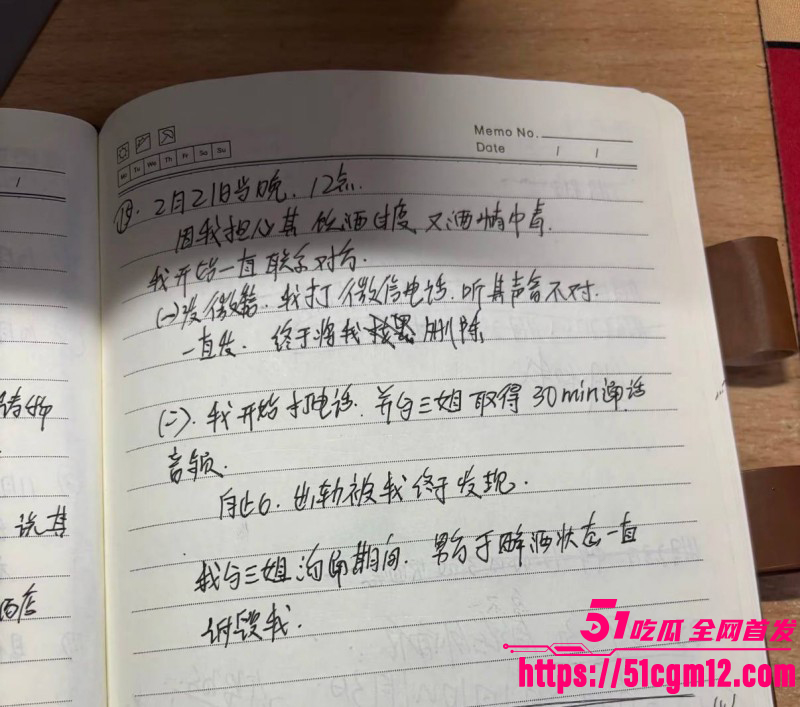 Memo No.
Date / /
Mo Tu We Th Fr Sa Su
⑲. 2月21日当晚. 12点.
因我担心其饮酒过度 又酒精中毒.
我开始一直联系对方.
(一) 发微信. 我打微信电话. 听其声音不对.
一直发. 终于将我 删除
(二). 我开始打电话. 并与三姐取得30min通话
音频.
自此. 出轨被我终于发现.
我与三姐沟通期间. 男方于醉酒状态一直
诋毁我.
/
说其
酒店
51吃瓜 全网首发
https://51cgm12.com